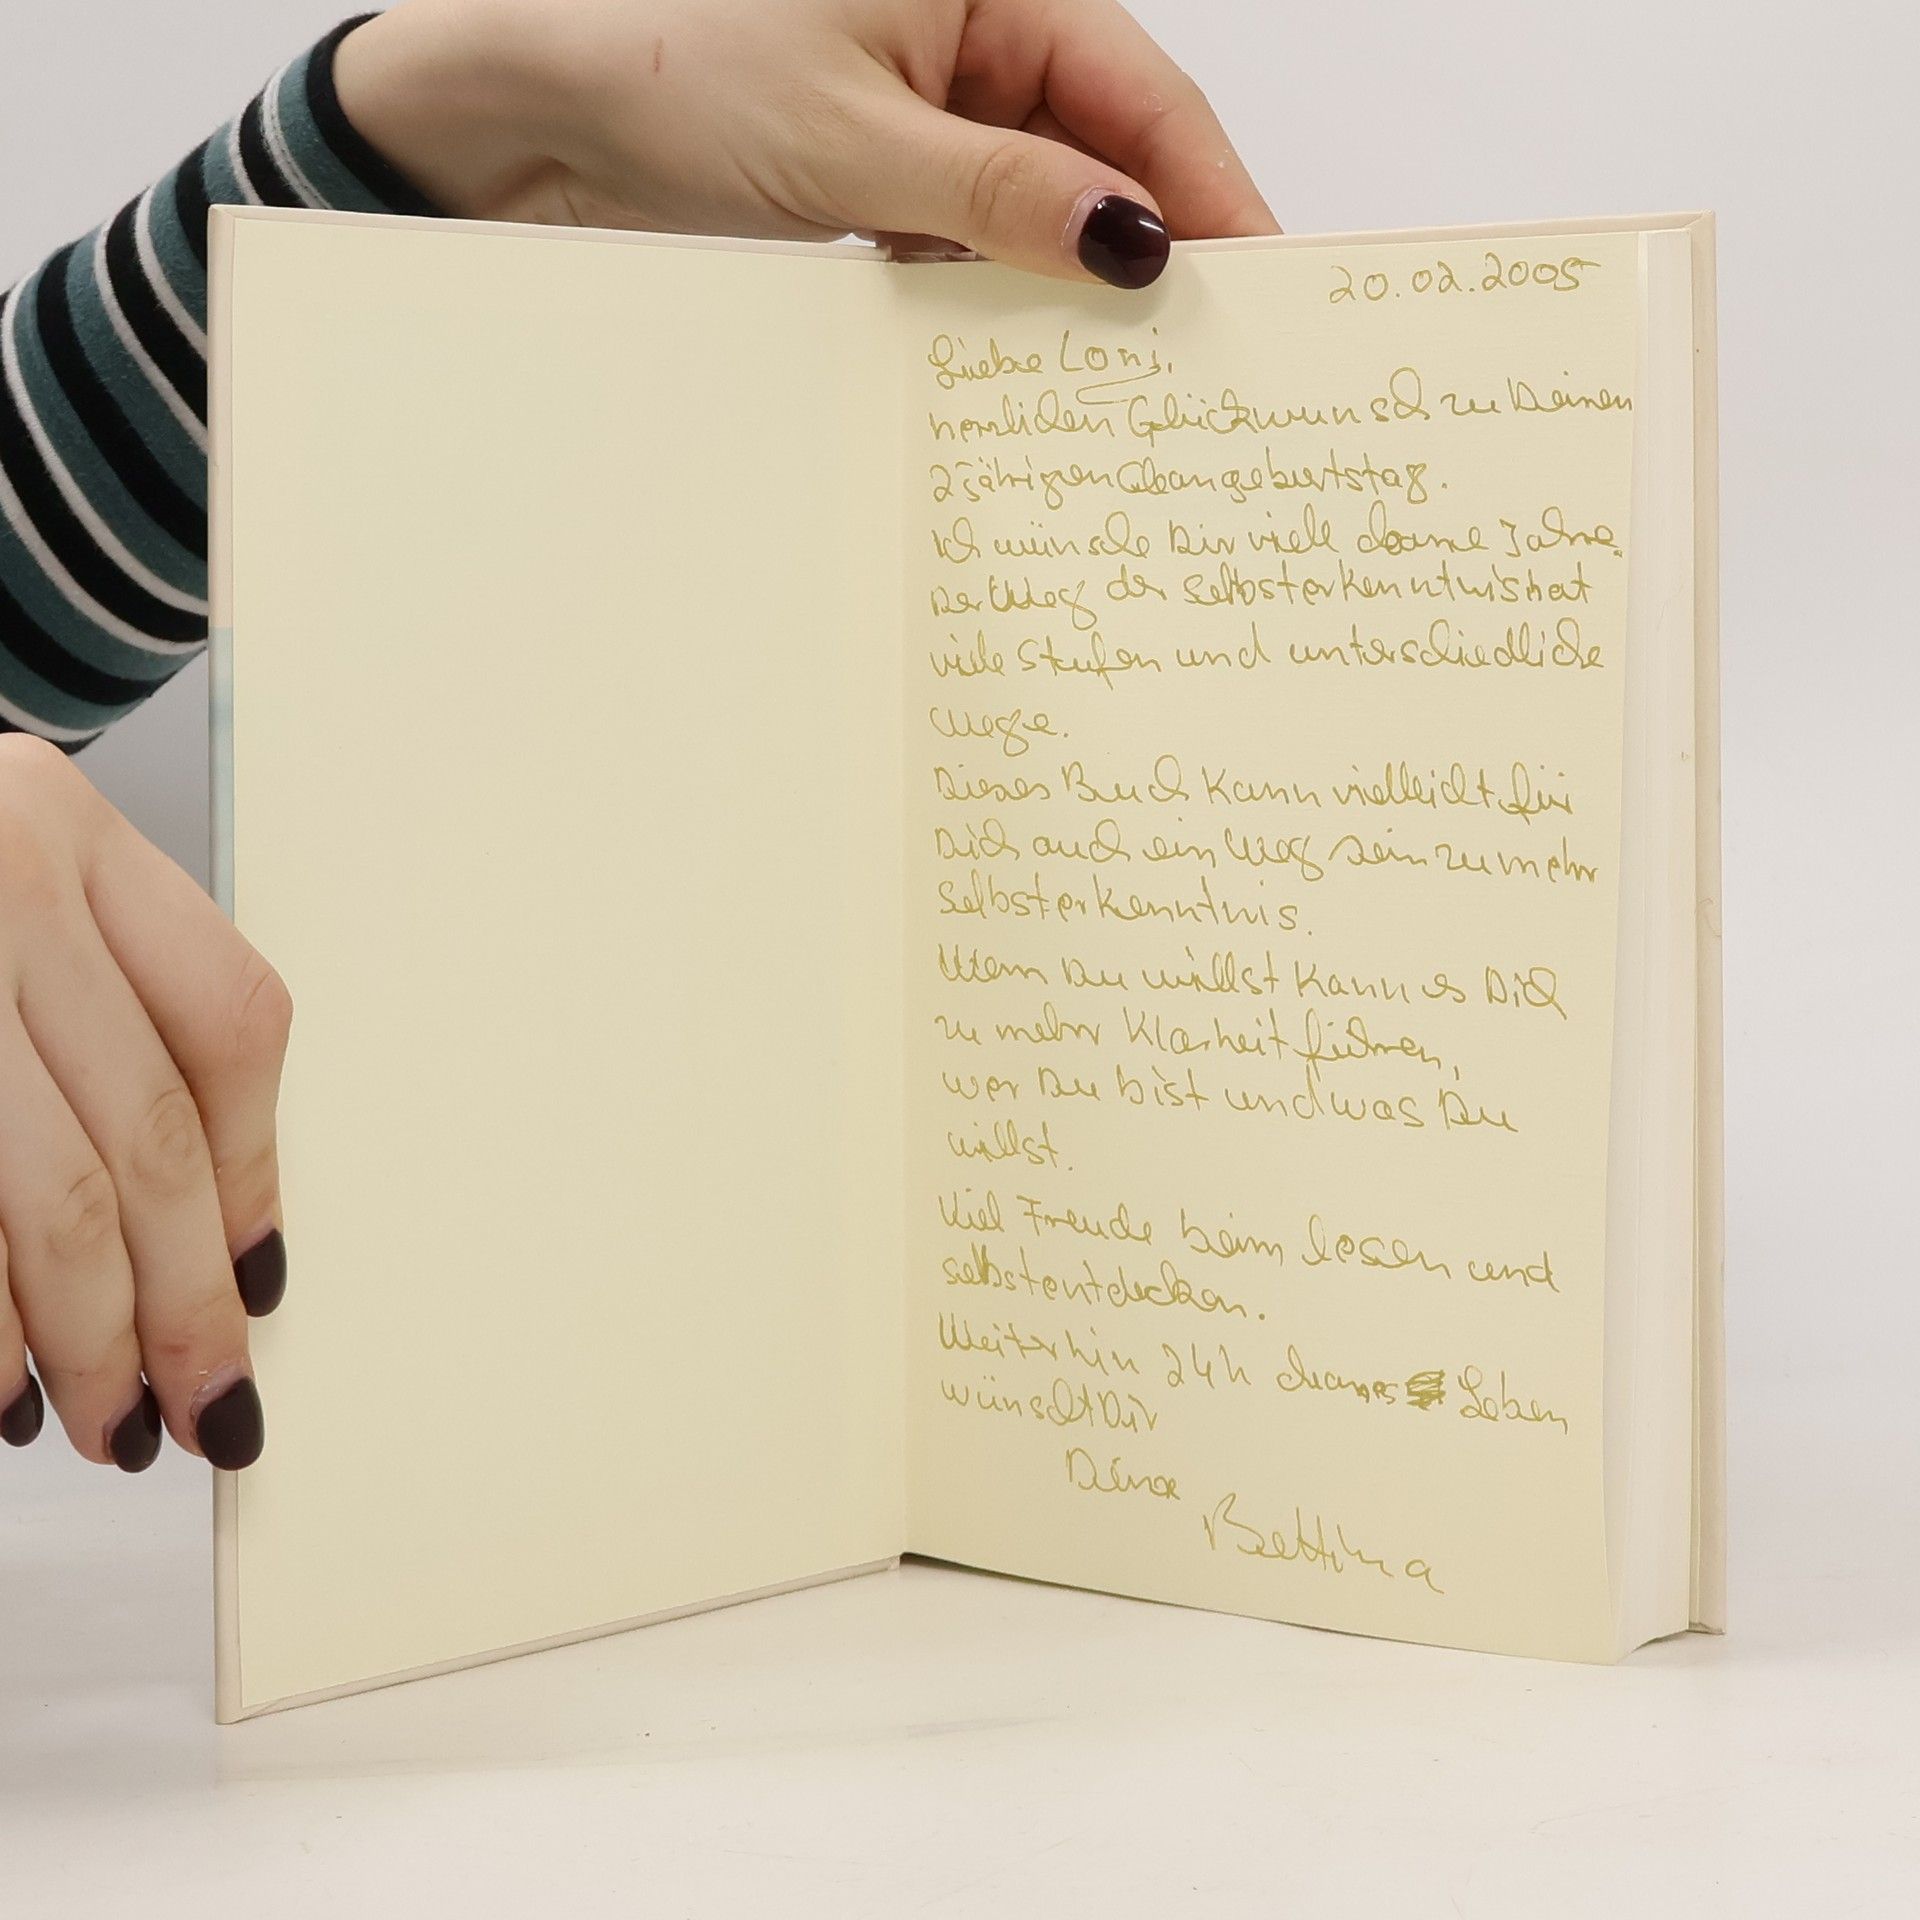 20.02.2005
Liebe Loni,
herzlichen Glückwunsch zu Deinen
2jährigen Cleangeburtstag.
Ich wünsche Dir viele cleane Jahre.
Der Weg der Selbsterkenntnis hat
viele Stufen und unterschiedliche
Wege.
Dieses Buch kann vielleicht für
Dich auch ein Weg sein zu mehr
Selbsterkenntnis.
Wenn Du willst kann es Dich
zu mehr Klarheit führen,
wer Du bist und was Du
willst.
Viel Freude beim lesen und
selbstentdecken.
Weiterhin 24h cleanes Leben
wünscht Dir
Deine
Bettina